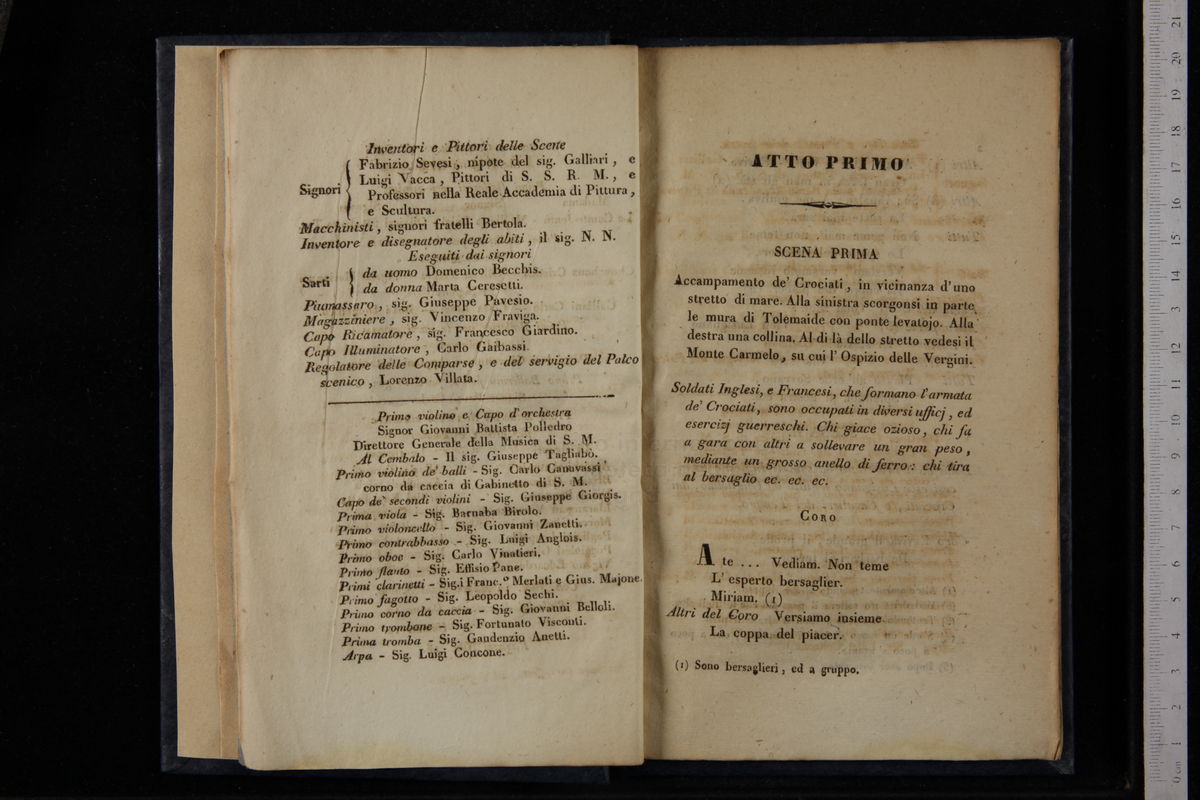 Inventori e Pittori delle Scene
Signori
Fabrizio Sevesi, nipote del sig. Galliari, e
Luigi Vacca, Pittori di S. S. R. M., e
Professori nella Reale Accademia di Pittura,
e Scultura.
Macchinisti, signori fratelli Bertola.
Inventore e disegnatore degli abiti, il sig. N. N.
Eseguiti dai signori
Sarti
da uomo Domenico Becchis.
da donna Marta Ceresetti.
Piumassaro, sig. Giuseppe Pavesio.
Magazziniere, sig. Vincenzo Fraviga.
Capo Ricamatore, sig. Francesco Giardino.
Capo Illuminatore, Carlo Gaibassi.
Regolatore delle Comparse, e del servigio del Palco
scenico, Lorenzo Villata.
Primo violino e Capo d'orchestra
Signor Giovanni Battista Polledro
Direttore Generale della Musica di S. M.
Al Cembalo - Il sig. Giuseppe Tagliabò.
Primo violino de' balli - Sig. Carlo Canavassi
corno da caccia di Gabinetto di S. M.
Capo de' secondi violini - Sig. Giuseppe Giorgis.
Prima viola - Sig. Barnaba Birolo.
Primo violoncello - Sig. Giovanni Zanetti.
Primo contrabbasso - Sig. Luigi Anglois.
Primo oboe - Sig. Carlo Vinatieri.
Primo flauto - Sig. Effisio Pane.
Primi clarinetti - Sig.i Franc.º Merlati e Gius. Majone.
Primo fagotto - Sig. Leopoldo Sechi.
Primo corno da caccia - Sig. Giovanni Belloli.
Primo trombone - Sig. Fortunato Visconti.
Prima tromba - Sig. Gaudenzio Anetti.
Arpa - Sig. Luigi Concone.
ATTO PRIMO
SCENA PRIMA
Accampamento de' Crociati, in vicinanza d'uno
stretto di mare. Alla sinistra scorgonsi in parte
le mura di Tolemaide con ponte levatojo. Alla
destra una collina. Al di là dello stretto vedesi il
Monte Carmelo, su cui l'Ospizio delle Vergini.
Soldati Inglesi, e Francesi, che formano l'armata
de' Crociati, sono occupati in diversi ufficj, ed
esercizj guerreschi. Chi giace ozioso, chi fa
a gara con altri a sollevare un gran peso,
mediante un grosso anello di ferro: chi tira
al bersaglio ec. ec. ec.
CORO
A te ... Vediam. Non teme
L'esperto bersaglier.
Miriam. (1)
Altri del Coro Versiamo insieme
La coppa del piacer.
(1) Sono bersaglieri, ed a gruppo.
0 cm 1 2 3 4 5 6 7 8 9 10 11 12 13 14 15 16 17 18 19 20 21